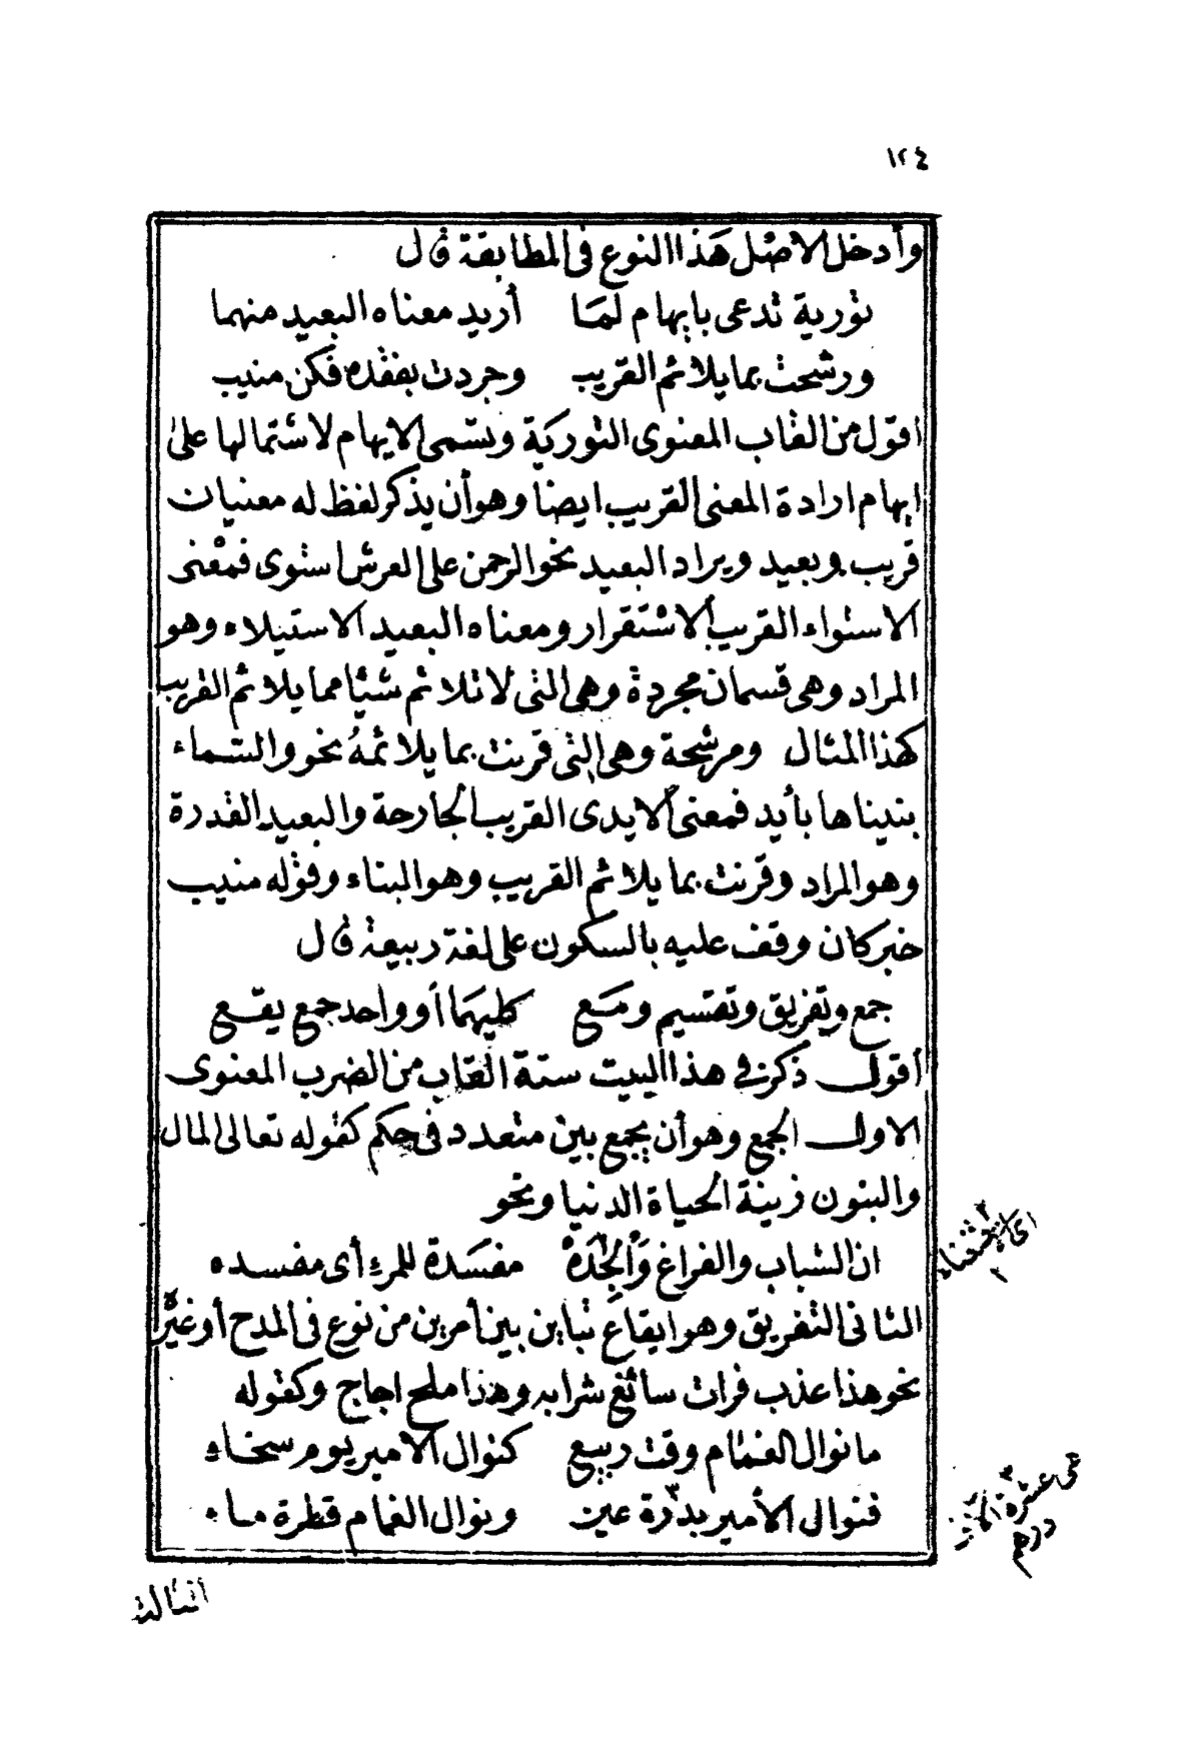 ١٢٤
وأدخل الاصل هذا النوع فى المطابقة قال
تورية تدعى بايهام لما أريد معناه البعيد منهما
ورشحت بما يلائم القريب وجردت بفقده فكن منيب
اقول من القاب المعنوى التورية وتسمى الايهام لاشتمالها على
ايهام ارادة المعنى القريب ايضا وهو أن يذكر لفظ له معنيان
قريب وبعيد ويراد البعيد نحو الرحمن على العرش استوى فمعنى
الاستواء القريب الاستقرار ومعناه البعيد الاستيلاء وهو
المراد وهى قسمان مجردة وهى التى لا تلائم شيئا مما يلائم القريب
كهذا المثال ومرشحة وهى التى قرنت بما يلائمهُ نحو والسماء
بنيناها بأيد فمعنى الايدى القريب الجارحة والبعيد القدرة
وهو المراد وقرنت بما يلائم القريب وهو البناء وقوله منيب
خبر كان وقف عليه بالسكون على لغة ربيعة قال
جمع وتفريق وتقسيم ومع كليهما أو واحد جمع يقع
أقول ذكر فى هذا البيت ستة القاب من الضرب المعنوى
الاول الجمع وهو أن يجمع بين متعدد فى حكم كقوله تعالى المال
والبنون زينة الحياة الدنيا ونحو
ان الشباب والفراغ والجدة مفسدة للمرء أى مفسده
اى الاستغناء
الثانى التفريق وهو ايقاع تباين بين أمرين من نوع فى المدح أو غيره
نحو هذا عذب فرات سائغ شرابه وهذا ملح اجاج وكقوله
ما نوال الغمام وقت ربيع كنوال الامير يوم سخاء
فنوالى الأمير بدرة عين ونوال الغمام قطرة ماء
هى عشرة آلاف
درهم
الثالث